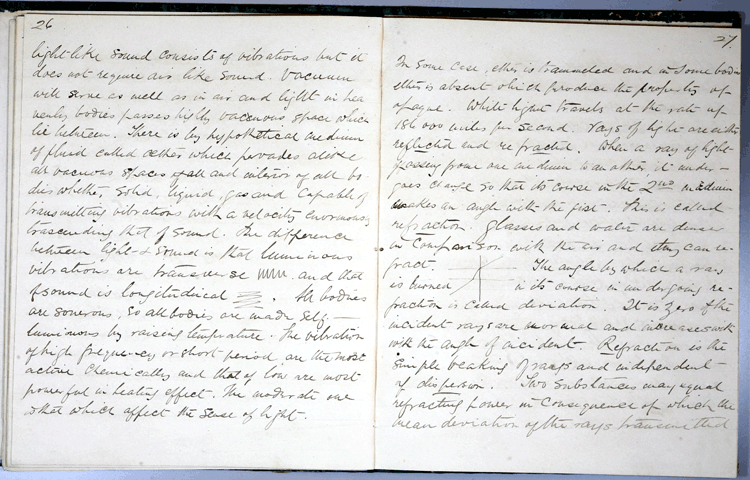 26
light like sound consists of vibrations but it
does not require air like sound. Vacuum
will serve as well as in air and light in hea
venly bodies passes highly vacuous space which
lie between. There is by hypothetical medium
of fluid called aether which pervades alike
all vacuous spaces of all and interior of all bo-
dies whether, Solid, liquid, gas and Capable of
transmitting vibrations with a velocity enormously
trascending that of Sound. The difference
between light & Sound is that luminious
vibrations are transverse and that
of sound is longitudical. All bodies
are sonerous, So all bodies are made self-
luminious by raising temprature. The vibration
of high frequency or short period are the most
active chemically and that of low are most
powerful in heating effect. The moderate one
is that which affect the sense of light.
27.
In some case, ether is trammeled and in some bodies
ether is absent which produce the property of
opaque. White light travels at the rate of
186 000 miles per second. rays of light are either
reflected and refracted. When a ray of light
passing from one medium to another, it under-
goes change so that its course in the 2nd medium
makes an angle with the first. This is called
refraction. Glasses and water are denser
in Comparison with the air and they can re-
fract. The angle by which a ray
is turned in its course in undergoing re-
fraction is called deviation. It is zero if the
incident ray are normal and increases with
with the angle of incident. Refraction is the
Simple beaking of rays and independent
of dispersion. Two Substances may equal
refracting power in Consequence of which the
mean deviation of the rays transmitted